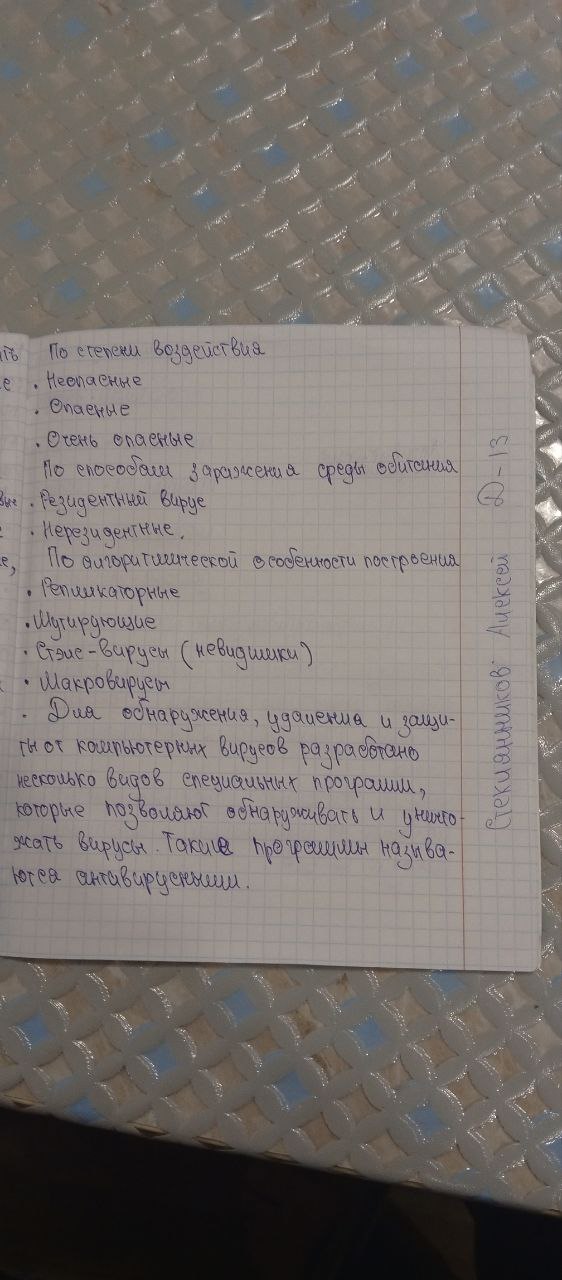 По степени воздействия
• Неопасные
• Опасные
• Очень опасные
По способам заражения среды обитания
• Резидентный вирус
• Нерезидентные.
По алгоритмической особенности построения
• Репликаторные
• Мутирующие
• Стэлс-вирусы (невидимки)
• Макровирусы
• Для обнаружения, удаления и защи-
ты от компьютерных вирусов разработано
несколько видов специальных программ,
которые позволяют обнаруживать и уничто-
жать вирусы. Такие программы называ-
ются антивирусными.
Стеклянников Алексей Д-13